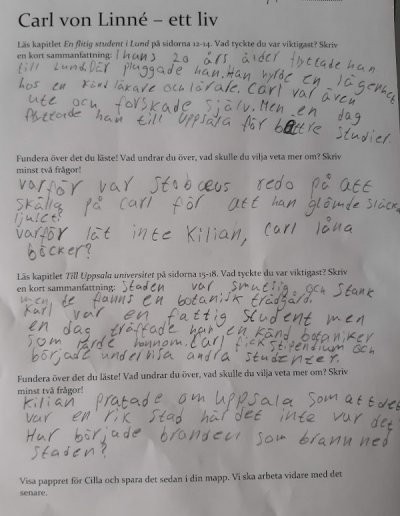 Carl von Linné – ett liv
Läs kapitlet En flitig student i Lund på sidorna 12-14. Vad tyckte du var viktigast? Skriv
en kort sammanfattning: I hans 20 års ålder flyttade han
till Lund. Där pluggade han. Han hyrde en lägenhet
hos en känd läkare och lärare. Carl var även
ute och forskade själv. Men en dag
flyttade han till Uppsala för bättre studier.
Fundera över det du läste! Vad undrar du över, vad skulle du vilja veta mer om? Skriv
minst två frågor!
varför var Stobœus redo på att
skälla på Carl för att han glömde släcka
ljuset?
varför lät inte Kilian, Carl låna
böcker?
Läs kapitlet Till Uppsala universitet på sidorna 15-18. Vad tyckte du var viktigast? Skriv
en kort sammanfattning: Staden var smutsig och stank
men, te fanns en botanisk trädgård.
Karl var en fattig student men
en dag träffade han en känd botaniker
som lärde honnom. Carl fick stipendium och
började undervisa andra studenter.
Fundera över det du läste! Vad undrar du över, vad skulle du vilja veta mer om? Skriv
minst två frågor!
Kilian pratade om Uppsala som att det
var en rik stad när det inte var det?
Hur började branden som brann ned
staden?
Visa pappret för Cilla och spara det sedan i din mapp. Vi ska arbeta vidare med det
senare.